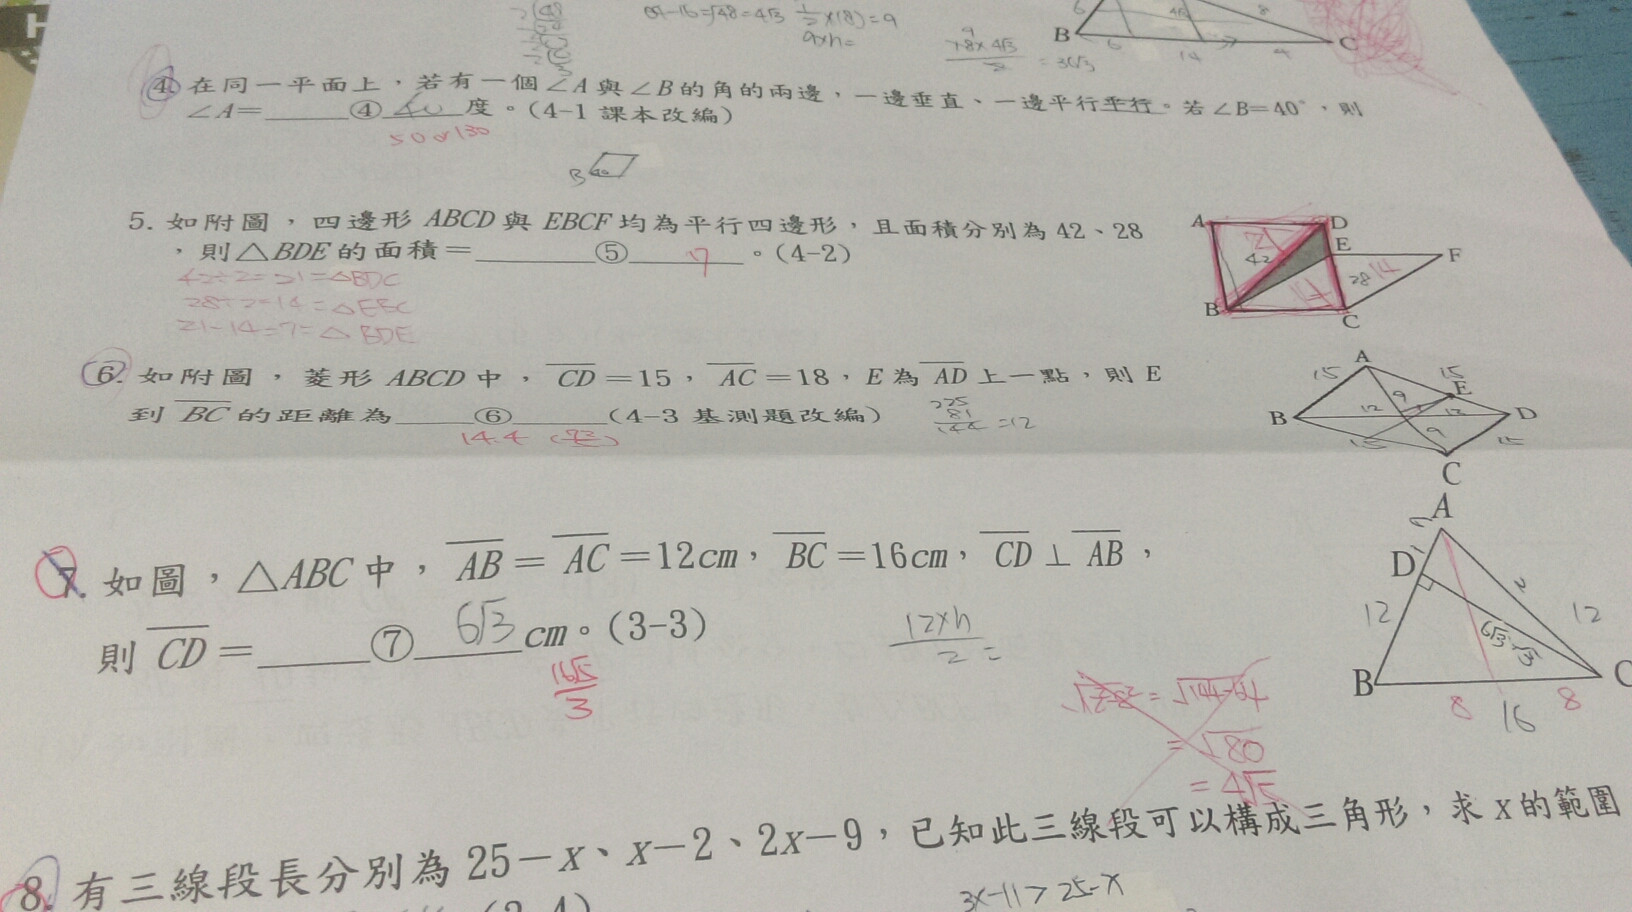 =√48=4√3 ½×(8)=9
9×h=
=36√3
B 6 14 C
④ 在同一平面上，若有一個∠A與∠B的角的兩邊，一邊垂直、一邊平行平行。若∠B=40°，則
∠A=____④ 40 度。(4-1 課本改編)
50 or 130
B 40
5. 如附圖，四邊形 ABCD 與 EBCF 均為平行四邊形，且面積分別為 42、28
，則△BDE 的面積=____⑤ 7 。(4-2)
42÷2=21=△BDC
28÷2=14=△EBC
21-14=7=△BDE
A D
E F
42 28 14
14
B C
6. 如附圖，菱形 ABCD 中，CD=15，AC=18，E 為 AD 上一點，則 E
到 BC 的距離為____⑥____(4-3 基測題改編)
14.4
225
81
144 =12
A
15 15
9 E
B 12 12 D
15 9 15
C
7. 如圖，△ABC 中，AB=AC=12cm，BC=16cm，CD⊥AB，
則 CD=____⑦ 6√3 cm。(3-3)
16√5
3
12×h
2 =
=√144-64
=√80
=4√5
A
D
12 12
6√3
B C
8 16 8
8. 有三線段長分別為 25-x、x-2、2x-9，已知此三線段可以構成三角形，求 x 的範圍
3x-11>25-x